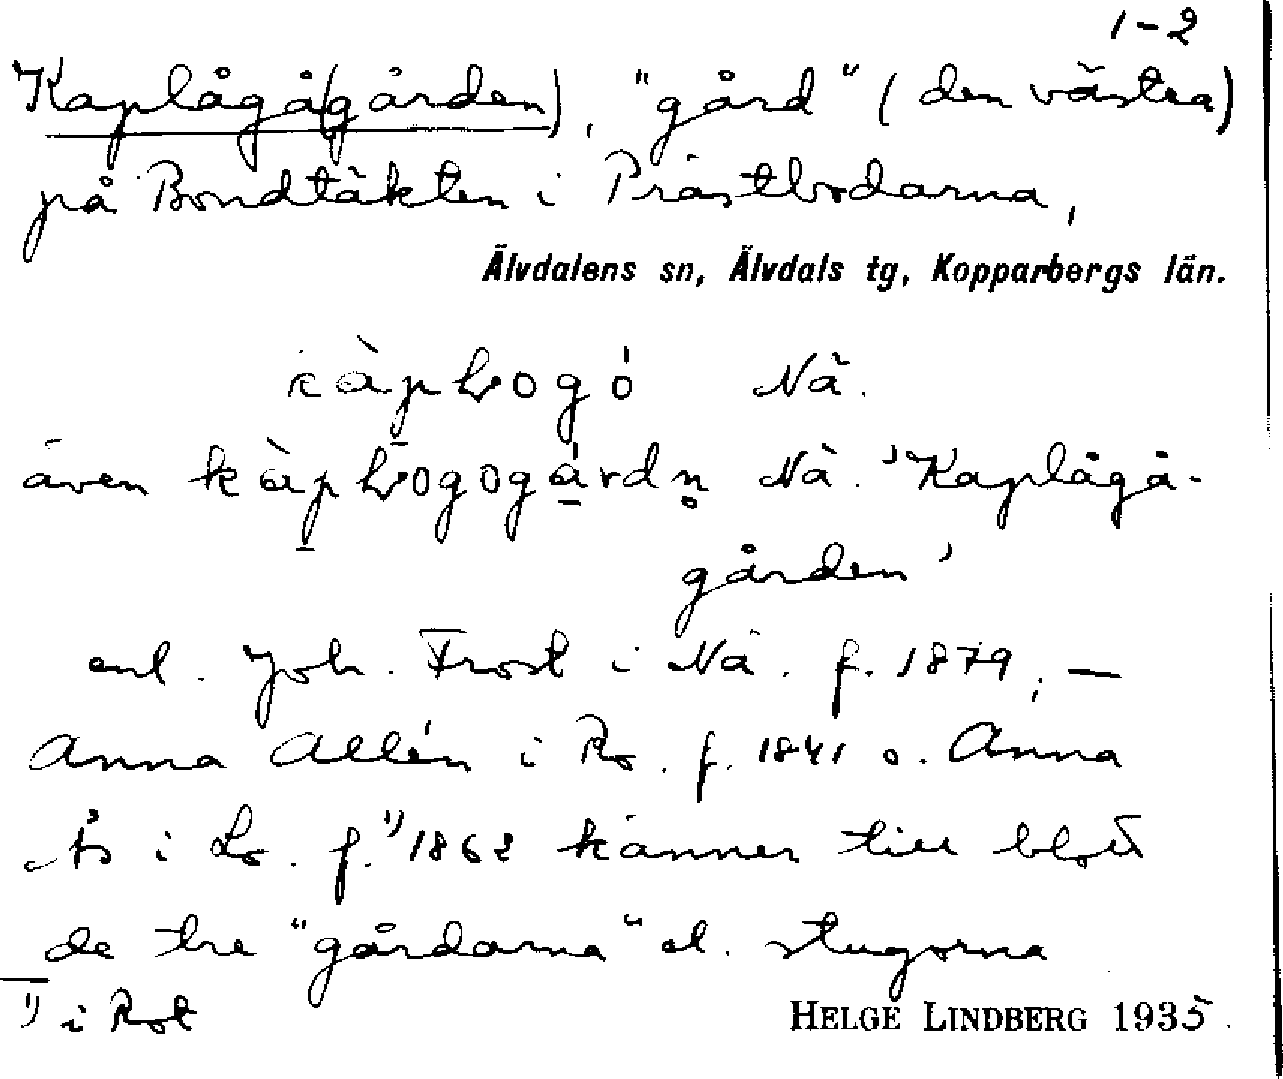 1-2
Kaplågå(gården), "gård" (den västra)
på Bondtäkten i Prästbodarna,
Älvdalens sn, Älvdals tg, Kopparbergs län.
Nä.
även Nä. 'Kaplågå-
gården'
enl. Joh. Frost i Nä. f. 1879; —
Anna Allén i Ro. f. 1841 o. Anna
Ås i Lo. f.¹⁾ 1862 känner till blott
de tre "gårdarna" el. stugorna
¹⁾ i Rot
HELGE LINDBERG 1935.